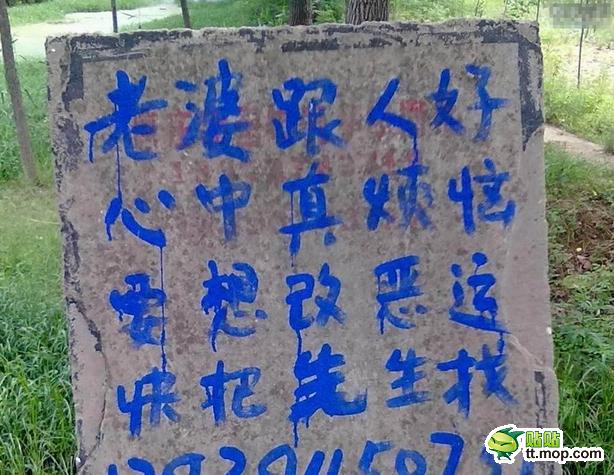 老婆跟人好
心中真烦恼
要想改恶运
快把先生找
贴贴
tt.mop.com